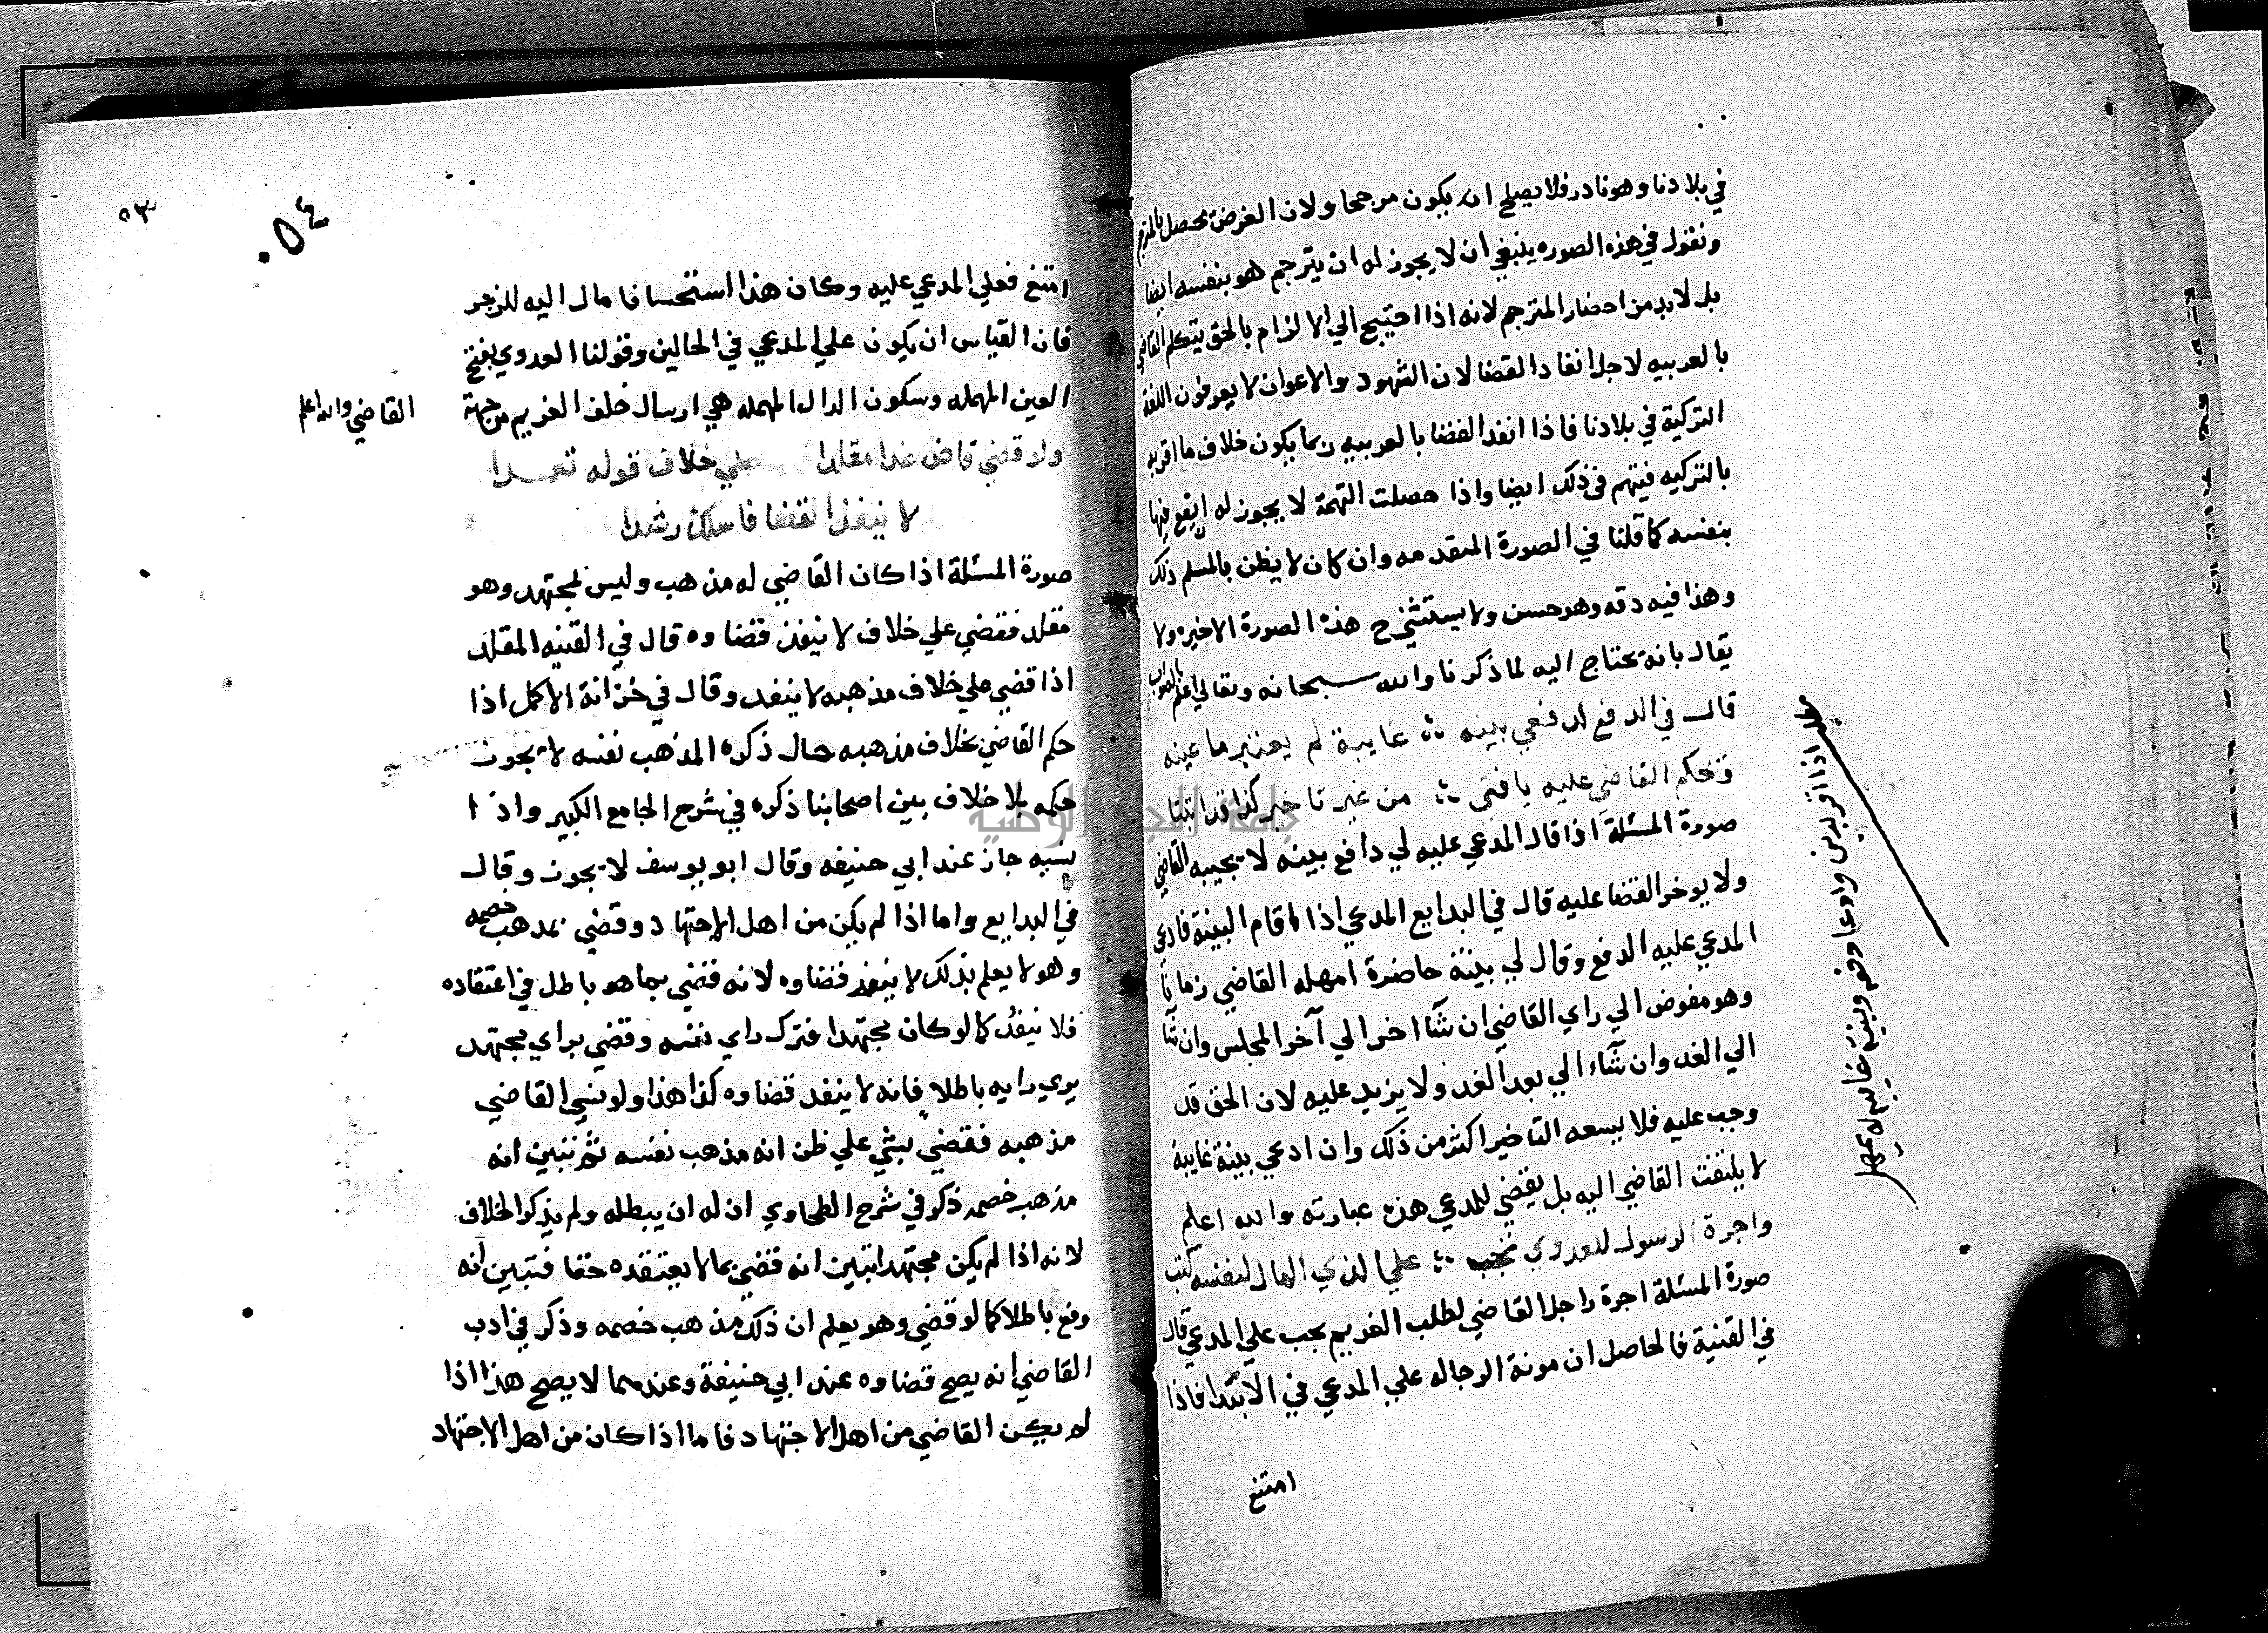 في بلادنا وهو نادر فلا يصلح ان يكون مرجحا ولان الغرض يحصل بالمترجم
ونقول في هذه الصوره ينبغي ان لا يجوز له ان يترجم هو بنفسه ايضا
بل لا بد من احضار المترجم لانه اذا احتيج الي الالزام بالحق يتكلم القاضي
بالعربيه لاجل انفاد القضا لان الشهود والاعوان لا يعرفون اللغة
التركية في بلادنا فاذا انفد القضا بالعربيه ربما يكون خلاف ما اقر به
بالتركيه فيتهم في ذلك ايضا واذا حصلت التهمة لا يجوز له ان يقع فيها
بنفسه كما قلنا في الصورة المتقدمه وان كان لا يظن بالمسلم ذلك
وهذا فيه دقه وهو حسن ولا يستثني ح هذه الصورة الاخيره ولا
يقال بانه يحتاج اليه لما ذكرنا والله سبحانه وتعالي اعلم بالصواب
قال في الدفع لد فعي بينه غايبة لم يعتبر ما عينه
ويحكم القاضي عليه يا فتى من غير تاخير كذا قد اثبتا
صورة المسئلة اذا قال المدعي عليه لي دافع بينه لا يجيبه القاضي
ولا يوخر القضا عليه قال في البدايع المدعي اذا اقام البينة فادعي
المدعي عليه الدفع وقال لي بينة حاضرة امهله القاضي زمانا
وهو مفوض الي راي القاضي ان شآ اخر الي آخر المجلس وان شآ
الي الغد وان شآء الي بعد الغد ولا يزيد عليه لان الحق قد
وجب عليه فلا يسعه التاخير اكثر من ذلك وان ادعي بينة غايبة
لا يلتفت القاضي اليه بل يقضي للمدعي هذه عبارته والله اعلم
واجرة الرسول للعدوي تجب علي الذي المال لنفسه كتب
صورة المسئلة اجرة راجل القاضي لطلب الغريم يجب علي المدعي قال
في القنية فالحاصل ان مونة الرجاله علي المدعي في الابتدا فاذا
امتنع
اذا اقر بدين وادعا دفعه وبينته غايبه
٥٣
٠٥٤
امتنع فعلي المدعي عليه وكان هذا استحسانا مال اليه للزجر
فان القياس ان يكون علي المدعي في الحالين وقولنا العدوي بفتح
العين المهمله وسكون الدال المهمله هي ارسال خلف الغريم من جهة
القاضي والله اعلم
ولو قضي قاض غدا مقلدا علي خلاف قوله تعمدا
لا ينفذ القضا فاسلك رشدا
صورة المسئلة اذا كان القاضي له مذهب وليس بمجتهد وهو
مقلد فقضي علي خلاف لا ينفذ قضاوه قال في القنيه المقلد
اذا قضي علي خلاف مذهبه لا ينفد وقال في خزانة الاكمل اذا
حكم القاضي بخلاف مذهبه حال ذكره المذهب نفسه لا يجوز
حكمه بلا خلاف بين اصحابنا ذكره في شرح الجامع الكبير واذا
نسيه جاز عند ابي حنيفه وقال ابو يوسف لا يجوز وقال
في البدايع واما اذا لم يكن من اهل الاجتهاد وقضي بمذهب خصمه
وهو لا يعلم بذلك لا ينفذ قضاوه لانه قضي بما هو باطل في اعتقاده
فلا ينفذ كما لو كان مجتهدا فترك راي نفسه وقضي براي مجتهد
يري رايه باطلا فانه لا ينفد قضاوه كذا هذا ولو نسي القاضي
مذهبه فقضي بشي علي ظن انه مذهب نفسه ثم تبين انه
مذهب خصمه ذكر في شرح الطحاوي ان له ان يبطله ولم يذكر الخلاف
لانه اذا لم يكن مجتهدا تبين انه قضي بما لا يعتقده حقا فتبين انه
وقع باطلا كما لو قضي وهو يعلم ان ذلك مذهب خصمه وذكر في ادب
القاضي انه يصح قضاوه عند ابي حنيفة وعندهما لا يصح هذا اذا
لم يكن القاضي من اهل الاجتهاد فاما اذا كان من اهل الاجتهاد
جامعة النجاح الوطنية